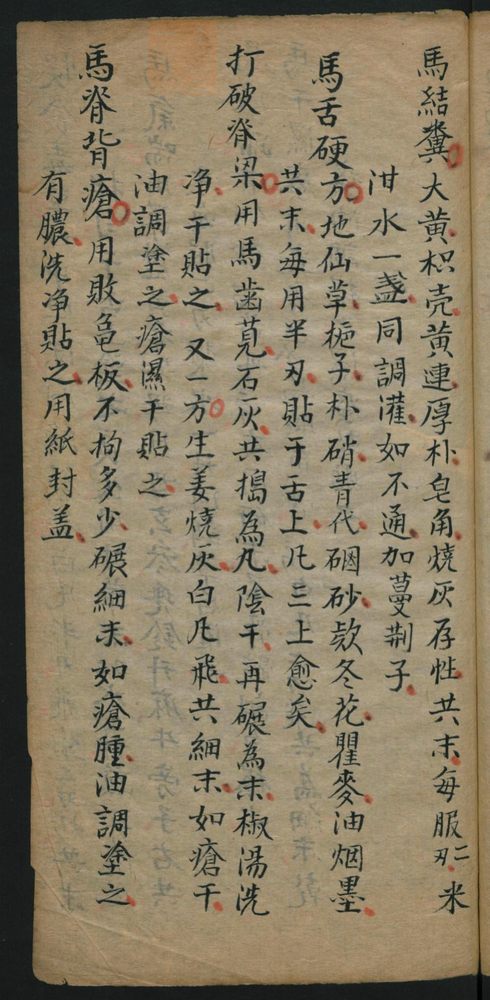 馬結糞大黄枳壳黄連厚朴皂角燒灰存性共末每服二刄米
泔水一盏同調灌如不通加蔓荆子
馬舌硬方地仙草梔子朴硝青代硇砂欵冬花瞿麥油烟墨
共末每用半刄貼于舌上凣三上愈矣
打破脊梁用馬歯莧石灰共搗為丸陰干再碾為末椒湯洗
净干貼之又一方生姜燒灰白凣飛共細末如瘡干
油調塗之瘡濕干貼之
馬脊背瘡用敗龟板不拘多少碾細末如瘡腫油調塗之
有膿洗净貼之用紙封盖